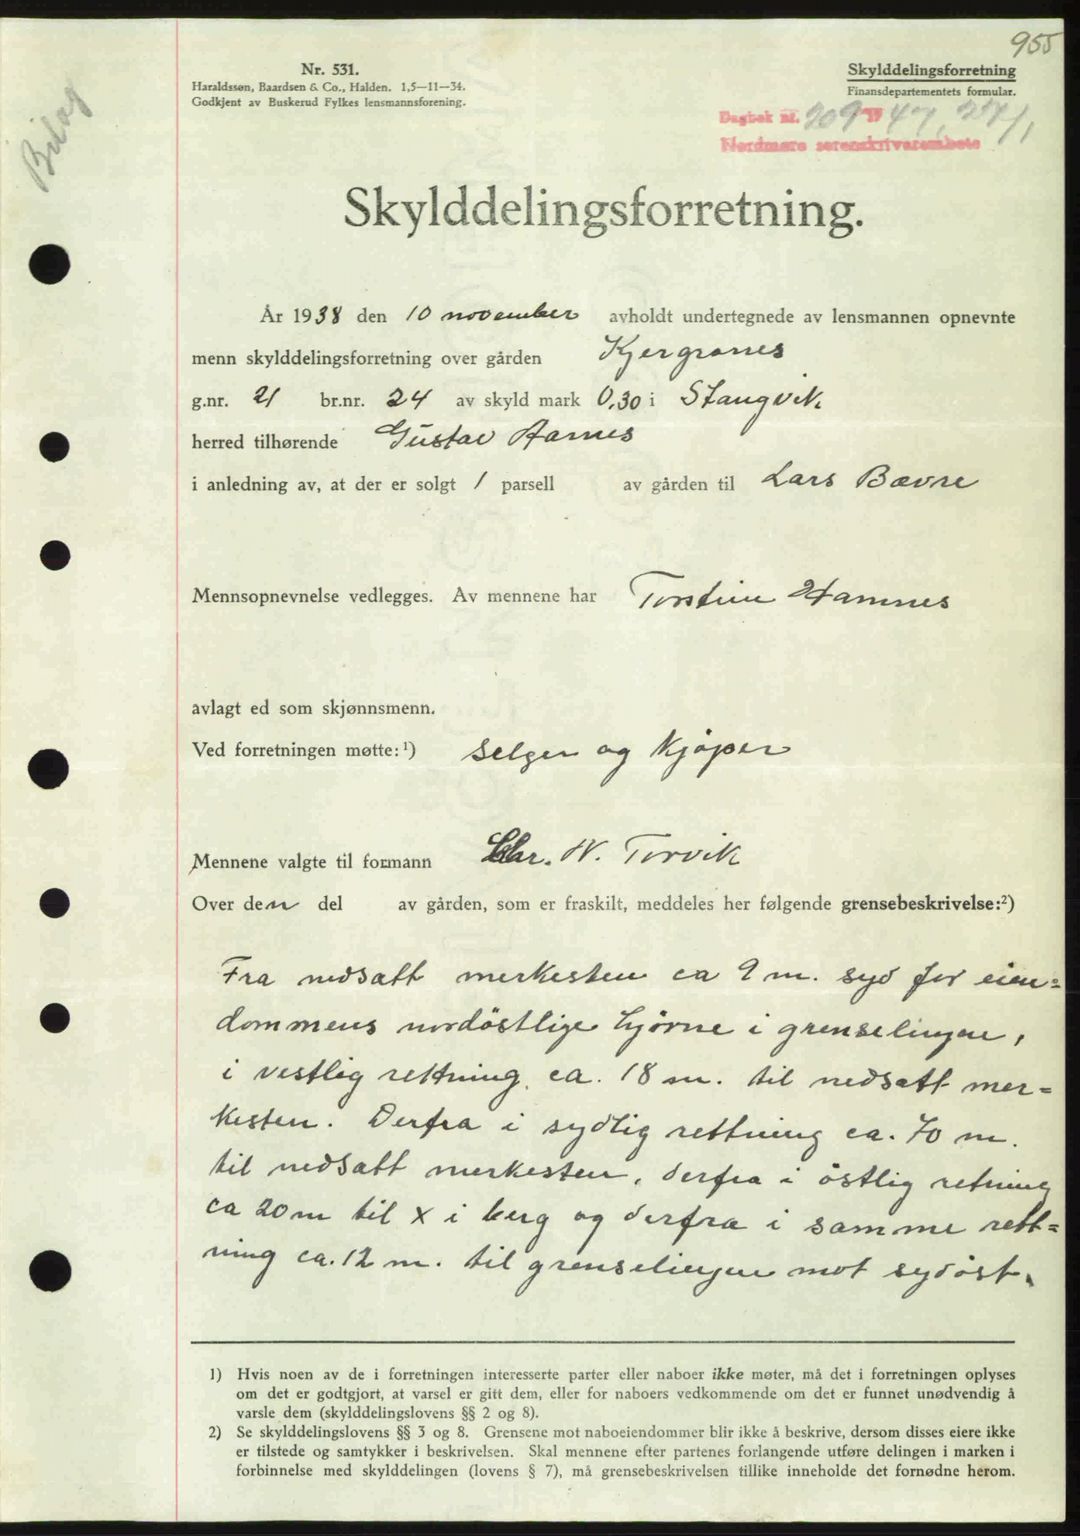 955
Nr. 531.
Haraldssøn, Baardsen & Co., Halden. 1,5—11—34.
Godkjent av Buskerud Fylkes lensmannsforening.
Skylddelingsforretning
Finansdepartementets formular.
Bilag
Dagbok nr. 209 19 47, 27/1
Nordmøre sorenskriverembete
Skylddelingsforretning.
År 1938 den 10 november avholdt undertegnede av lensmannen opnevnte
menn skylddelingsforretning over gården Kjergranes
g.nr. 21 br.nr. 24 av skyld mark 0,30 i Stangvik
herred tilhørende Gustav Aarnes
i anledning av, at der er solgt 1 parsell av gården til Lars Bævre
Mennsopnevnelse vedlegges. Av mennene har Torstein Hamnes
avlagt ed som skjønnsmenn.
Ved forretningen møtte:¹) selger og kjøper
Mennene valgte til formann Chr. N. Torvik
Over den del av gården, som er fraskilt, meddeles her følgende grensebeskrivelse:²)
Fra nedsatt merkesten ca 9 m. syd for eien=
dommens nordöstlige hjörne i grenselinjen,
i vestlig rettning, ca. 18 m. til nedsatt mer=
kesten. Derfra i sydlig rettning ca. 70 m.
til nedsatt merkesten, derfra i östlig retning
ca 20 m til x i berg og derfra i samme rett=
ning ca. 12 m. til grenselinjen mot sydöst.
1) Hvis noen av de i forretningen interesserte parter eller naboer ikke møter, må det i forretningen oplyses
om det er godtgjort, at varsel er gitt dem, eller for naboers vedkommende om det er funnet unødvendig å
varsle dem (skylddelingslovens §§ 2 og 8).
2) Se skylddelingslovens §§ 3 og 8. Grensene mot naboeiendommer blir ikke å beskrive, dersom disses eiere ikke
er tilstede og samtykker i beskrivelsen. Skal mennene efter partenes forlangende utføre delingen i marken i
forbinnelse med skylddelingen (lovens § 7), må grensebeskrivelsen tillike inneholde det fornødne herom.